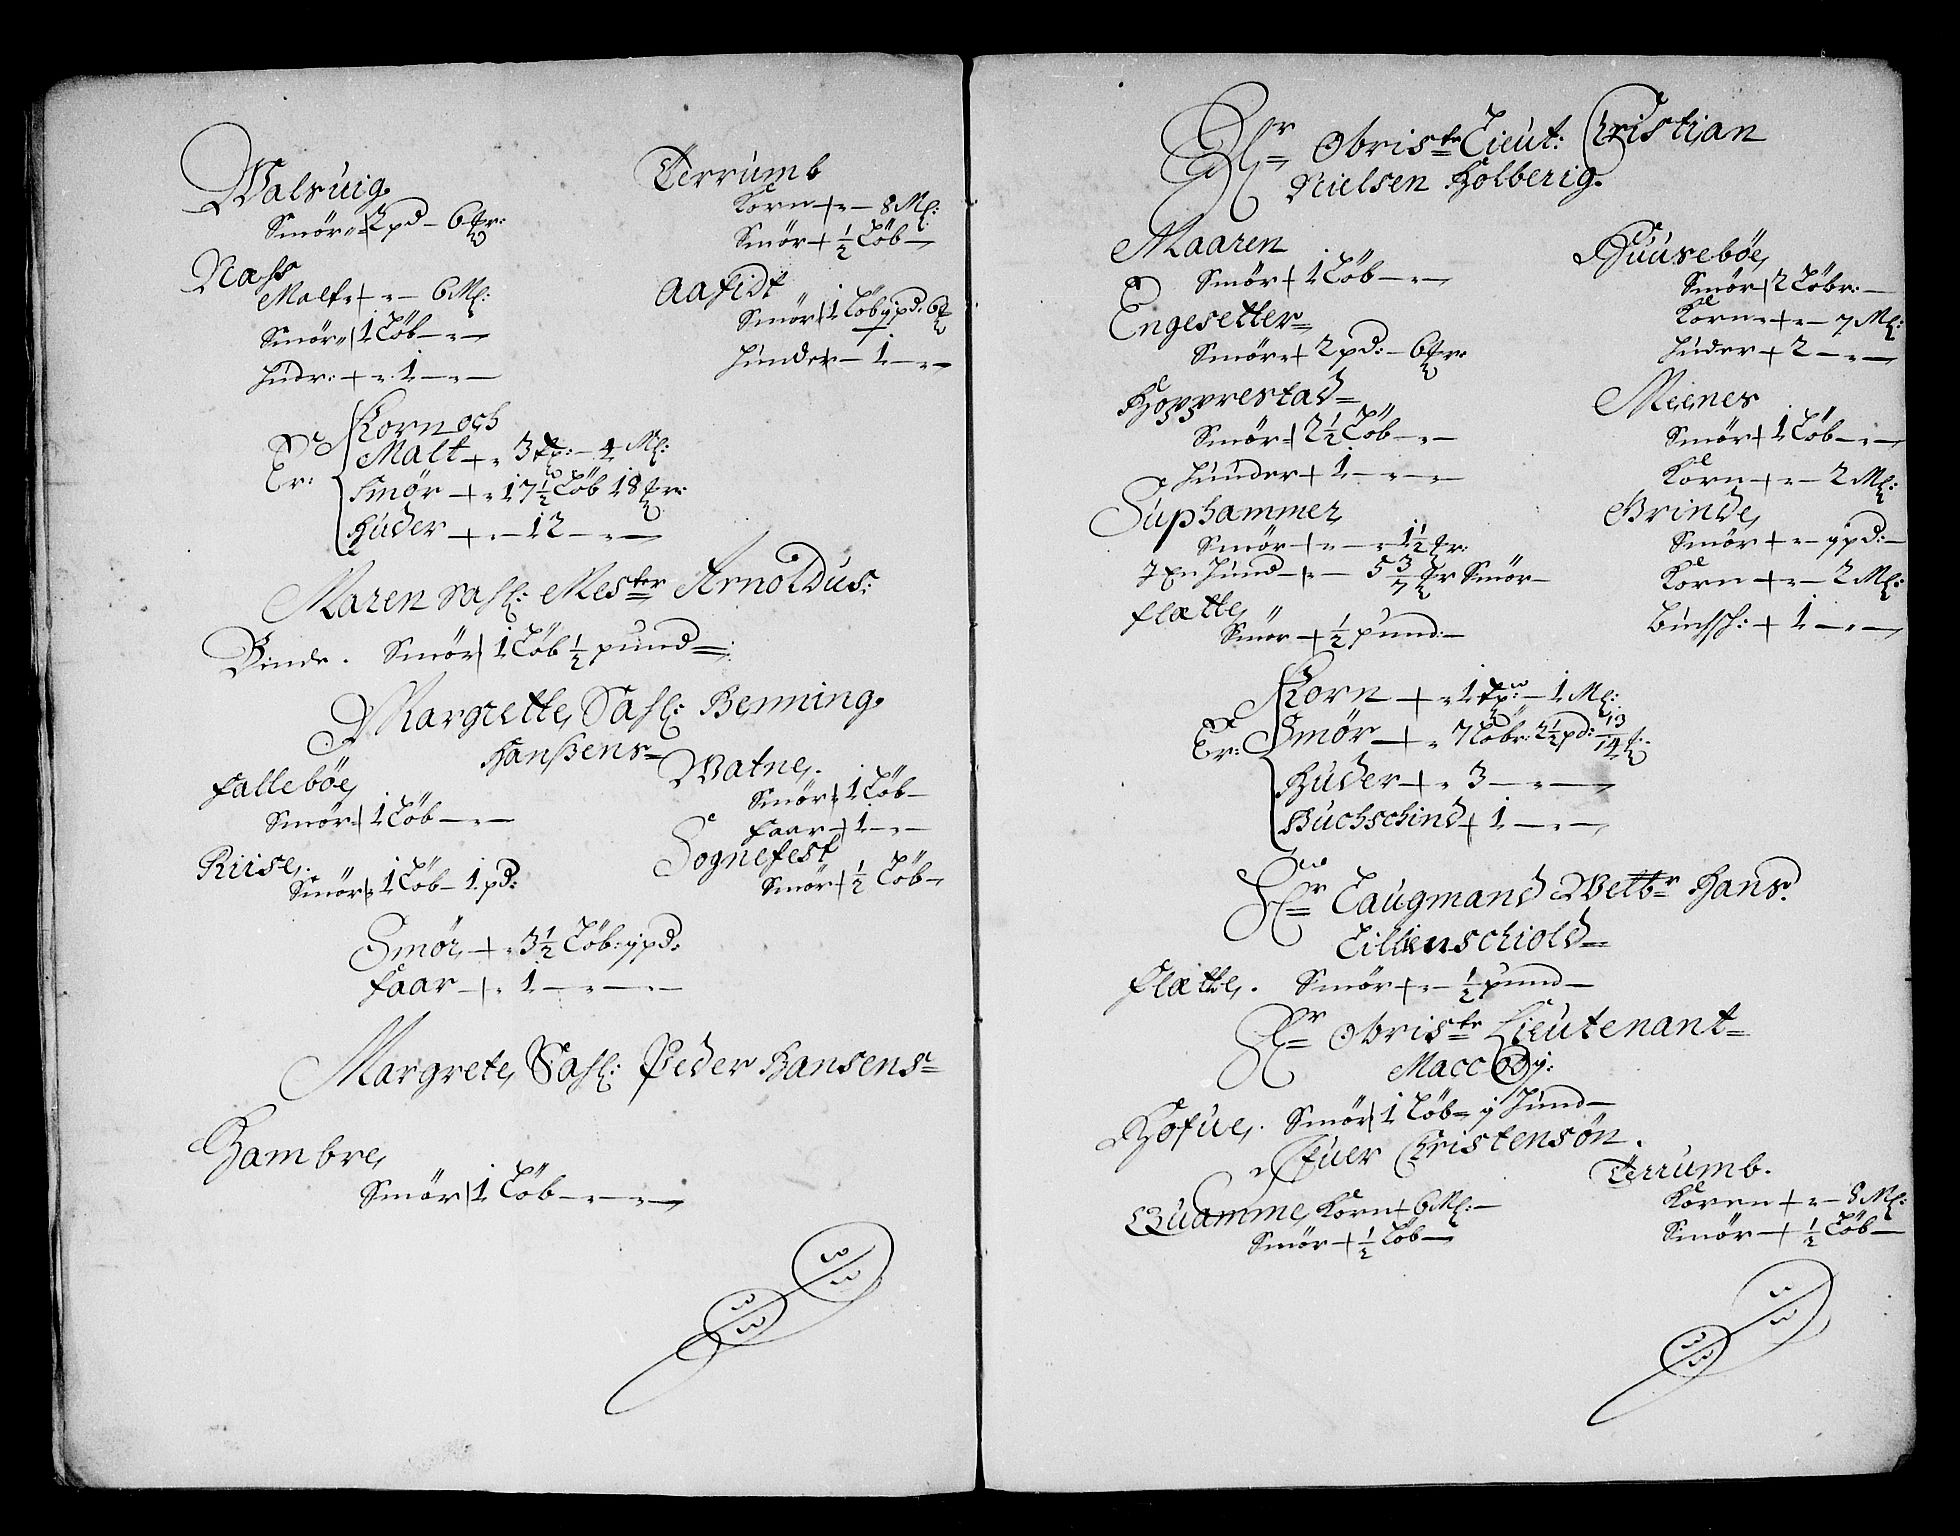 Walsuig
Smör 2 pd - 6 
Næss
Malt - 6 Ml:
Smör 1 Löb -
Hudr: + 1 -
Terrumb
Korn + - 8 Ml:
Smör + ½ Löb -
Aafidt
Smör 1 Löb 
Hunder - 1 -
Er:
Korn och
Malt + 3 - 4 Ml:
Smör + 17½ Löb 18 
Huder + - 12 -
Maren Sahl: Mester Arnoldus:
Binde. Smör 1 Löb ½ pund
Margrette, Sahl: Benning
Hanssens
Fallebøe
Smör 1 Löb -
Riise,
Smör 1 Löb - 1 pd:
Watne,
Smör 1 Löb -
Faar + 1 -
Sognefest
Smör ½ Löb -
Smör + 3½ Löb: ypd:
Faar + 1 -
Margrete, Sahl: Peder Hansens
Hambre,
Smör 1 Löb -
Hr Obriste Lieut: Christian
Nielsen Holberig.
Maaren
Smör + 1 Löb -
Engesetter
Smör + 2 pd: - 6 
Hopprestad
Smör 2½ Löb -
Hunder + 1 -
Suphammer
Smör + - 1½ 
En Hund - 5 3/7 Smör -
Flætte,
Smör + ½ pund: -
Huusebøe,
Smör 2 Löbr: -
Korn + - 7 Ml:
Huder + 2 -
Meenes
Smör + 1 Löb -
Korn + - 2 Ml:
Grinde,
Smör + - ypd: -
Korn + - 2 Ml:
Buchsch: + 1 -
Er:
Korn + 1 - 1 Ml:
Smör + 7 Löbr: 2½ pd: 13/14
Huder + 3 -
Buchschind + 1 -
Hr Laugmand Hans
Lillienschiold
Flætte,. Smör + - ½ pund -
Hr Obriste Lieutenant
Maccody:
Hofue,. Smör 1 Löb - y Hund -
Ifuer Christensøn.
Quamme, Korn + 6 Ml: -
Smör + ½ Löb -
Terrumb.
Koren + - 8 Ml:
Smör - + ½ Löb -